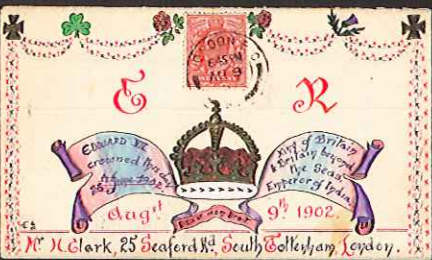 LONDON
6.45 PM
AU 9
E R
EDWARD VII
crowned
King of Britain
& Britain beyond
the Seas
Emperor of India
Augst 9th 1902.
Mr H. Clark, 25 Seaford Rd, South Tottenham, London.